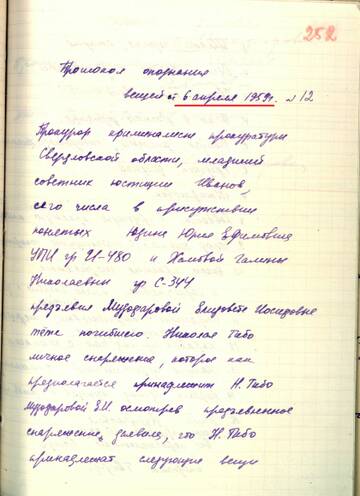 252
Протокол опознания
вещей от 6 апреля 1959г. №12
Прокурор криминалист прокуратуры
Свердловской области, младший
советник юстиции Иванов,
сего числа в присутствии
понятых Юдина Юрия Ефимовича
УПИ гр И-480 и Хомовой Галины
Николаевны гр С-344
предъявил Елизавете Иосифовне
тёте погибшего Николая Тибо
личное снаряжение, которое как
предполагается принадлежит Н. Тибо
Е.И. осмотрев предъявленное
снаряжение заявила, что Н. Тибо
принадлежат следующие вещи